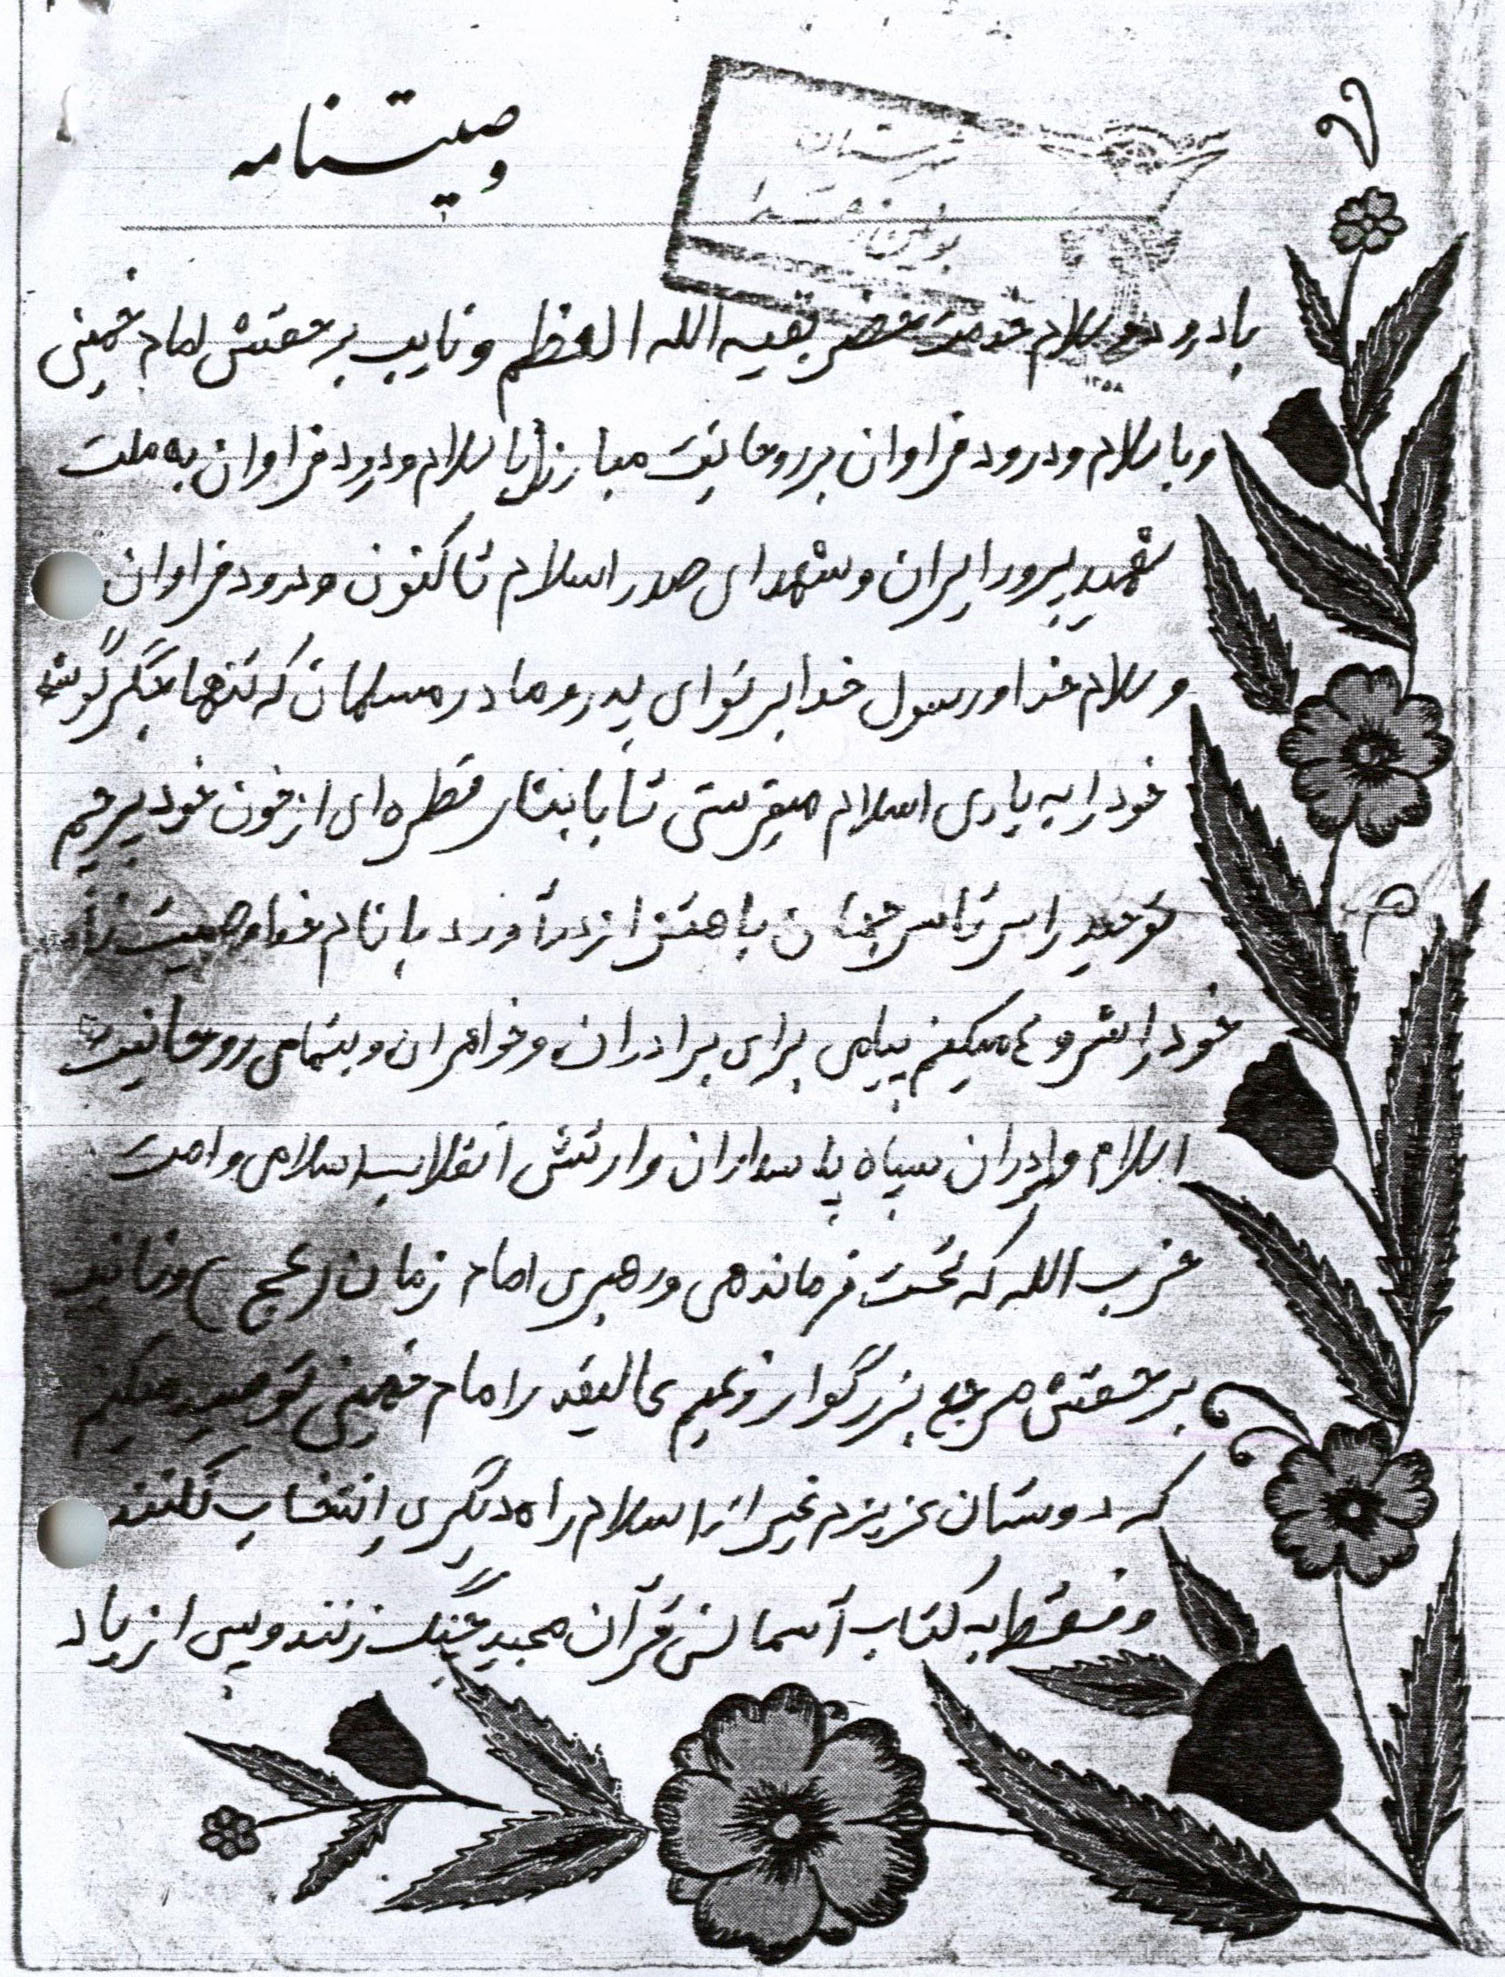 وصیتنامه
شهرستان
بنیاد شهید
۱۳۵۸
با درود و سلام خدمت حضر بقیه الله العظم و نایب بر حقتش امام خمینی
و با سلام و درود فراوان بر روحانیت مبارز با سلام و درود فراوان به ملت
شهید پرور ایران و شهدای صدر اسلام تا کنون و درود فراوان
و سلام خدا و رسول خدا بر تو ای پدر و مادر مسلمان که تنها جگر گوشه
خود را به یاری اسلام میفرستی تا با نثار قطره ای از خون خود پرچم
توحید را سر تا سر جهان با هتزاز در آورد با نام خدا وصیت نامه
خود را شروع میکنم پیامی برای برادران و خواهران و بتمامی روحانیت
اسلام و برادران سپاه پاسداران و ارتش انقلاب اسلامی و امت
حزب الله که تحت فرماندهی و رهبری امام زمان (عج) و نایب
بر حقتش مرجع بزرگوار زعیم عالیقدر امام خمینی توصیه میکنم
که دوستان عزیزم غیر از اسلام راه دیگری انتخاب نکنند
و فقط به کتاب آسمانی قرآن مجید چنگ زنند و پس از یاد